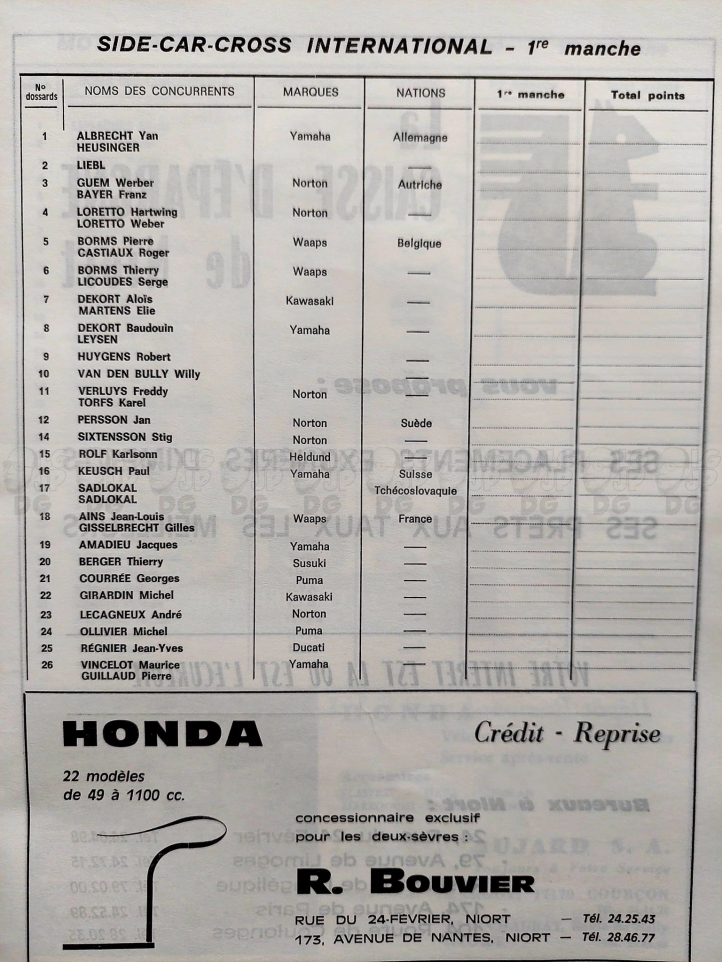 SIDE-CAR-CROSS INTERNATIONAL - 1re manche
No dossards NOMS DES CONCURRENTS MARQUES NATIONS 1re manche Total points
1 ALBRECHT Yan Yamaha Allemagne
HEUSINGER
2 LIEBL —
3 GUEM Werber Norton Autriche
BAYER Franz
4 LORETTO Hartwing Norton —
LORETTO Weber
5 BORMS Pierre Waaps Belgique
CASTIAUX Roger
6 BORMS Thierry Waaps —
LICOUDES Serge
7 DEKORT Aloïs Kawasaki —
MARTENS Elie
8 DEKORT Baudouin Yamaha —
LEYSEN
9 HUYGENS Robert —
10 VAN DEN BULLY Willy —
11 VERLUYS Freddy Norton —
TORFS Karel
12 PERSSON Jan Norton Suède
14 SIXTENSSON Stig Norton —
15 ROLF Karlsonn Heldund —
16 KEUSCH Paul Yamaha Suisse
17 SADLOKAL Tchécoslovaquie
SADLOKAL
18 AINS Jean-Louis Waaps France
GISSELBRECHT Gilles
19 AMADIEU Jacques Yamaha —
20 BERGER Thierry Susuki —
21 COURRÉE Georges Puma —
22 GIRARDIN Michel Kawasaki —
23 LECAGNEUX André Norton —
24 OLLIVIER Michel Puma —
25 RÉGNIER Jean-Yves Ducati —
26 VINCELOT Maurice Yamaha —
GUILLAUD Pierre
HONDA Crédit - Reprise
22 modèles
de 49 à 1100 cc.
concessionnaire exclusif
pour les deux-sèvres :
R. BOUVIER
RUE DU 24-FEVRIER, NIORT — Tél. 24.25.43
173, AVENUE DE NANTES, NIORT — Tél. 28.46.77